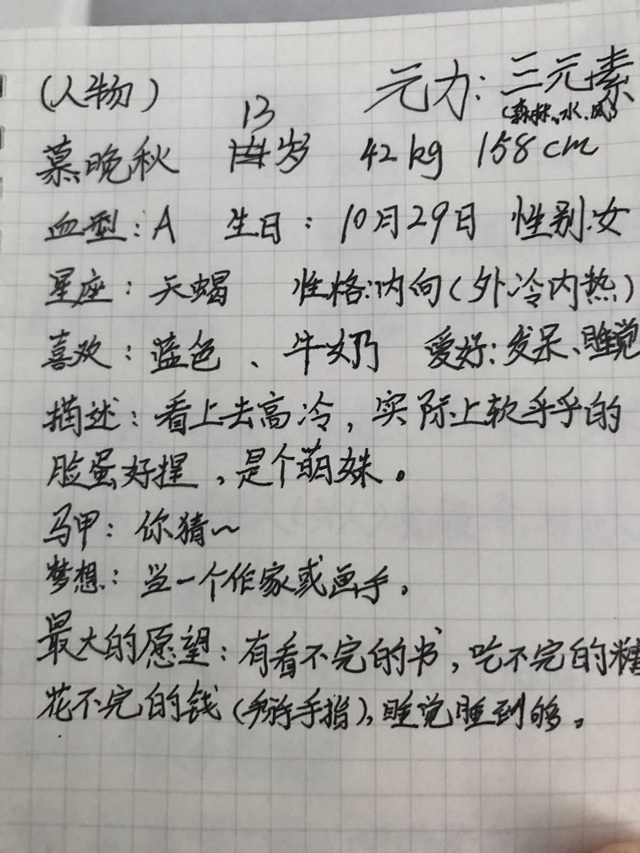 (人物) 元力：三元素
(森林、水、风)
慕晚秋 13岁 42kg 158cm
血型：A 生日：10月29日 性别：女
星座：天蝎 性格：内向(外冷内热)
喜欢：蓝色、牛奶 爱好：发呆、睡觉
描述：看上去高冷，实际上软乎乎的
脸蛋好捏，是个萌妹。
马甲：你猜~
梦想：当一个作家或画手。
最大的愿望：有看不完的书，吃不完的糖
花不完的钱(掰手指)，睡觉睡到够。